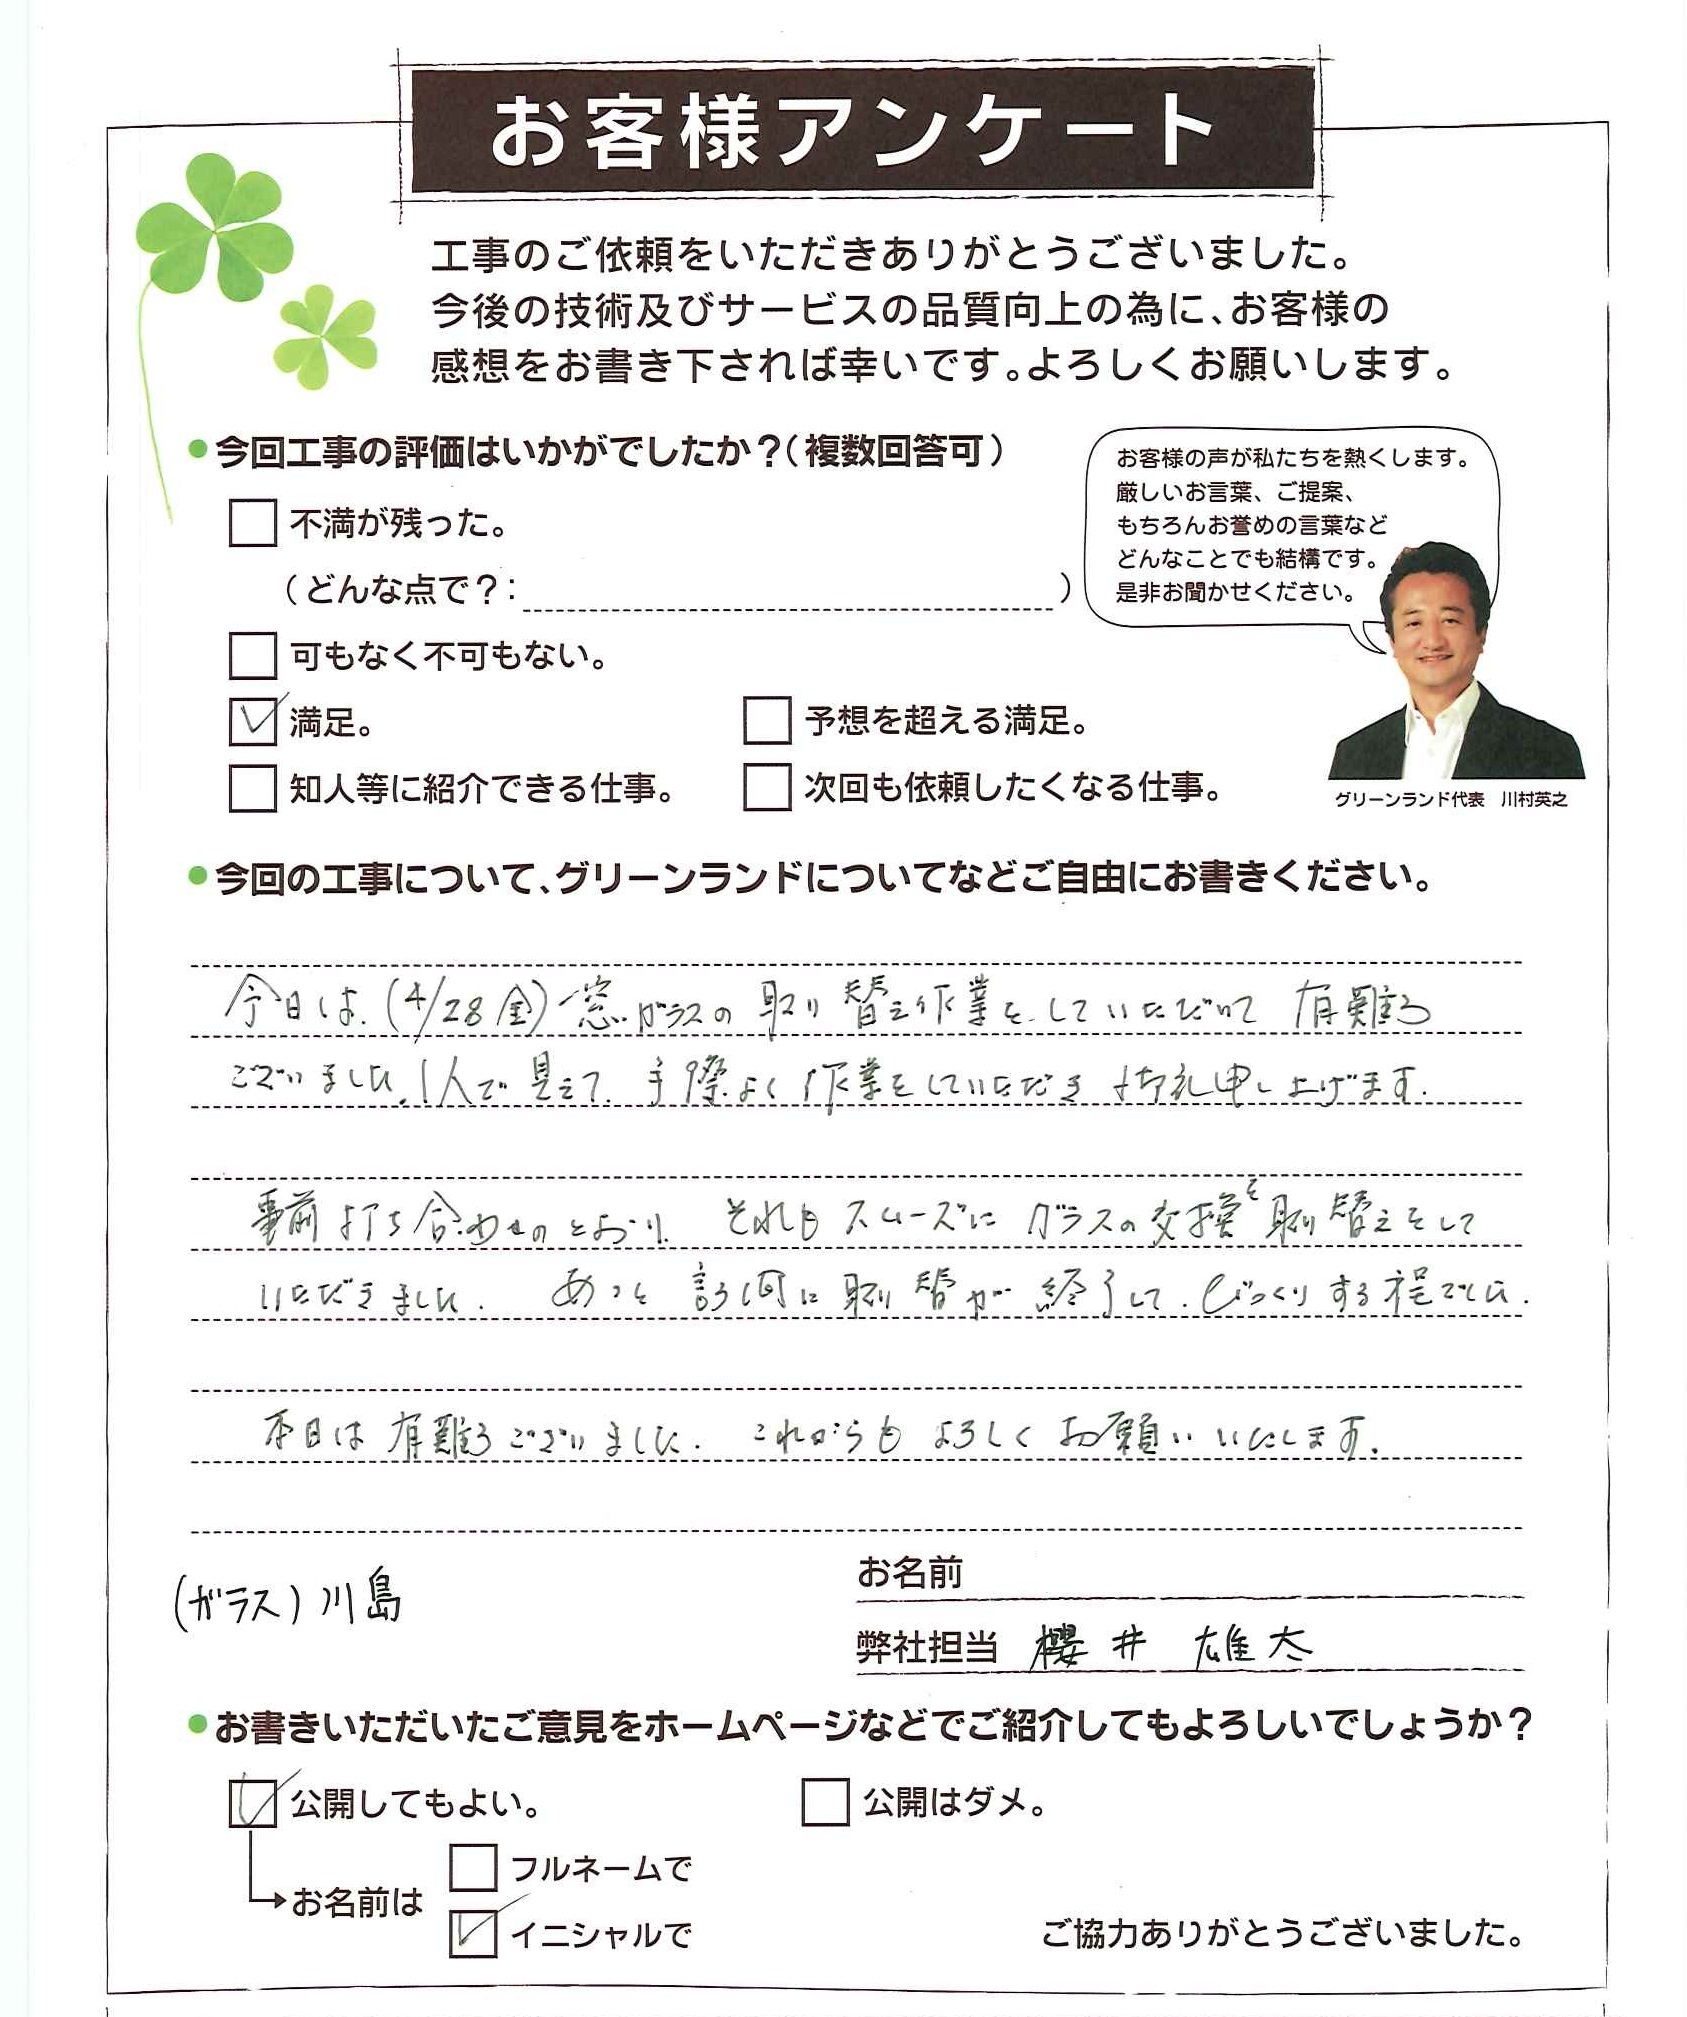 お客様アンケート
工事のご依頼をいただきありがとうございました。
今後の技術及びサービスの品質向上の為に、お客様の
感想をお書き下されば幸いです。よろしくお願いします。
●今回工事の評価はいかがでしたか？（複数回答可）
不満が残った。
（どんな点で？： ）
可もなく不可もない。
満足。
予想を超える満足。
知人等に紹介できる仕事。
次回も依頼したくなる仕事。
お客様の声が私たちを熱くします。
厳しいお言葉、ご提案、
もちろんお誉めの言葉など
どんなことでも結構です。
是非お聞かせください。
グリーンランド代表 川村英之
●今回の工事について、グリーンランドについてなどご自由にお書きください。
今日は、(4/28金)窓ガラスの取り替え作業をしていただいて有難う
ございました。1人で見えて、手際よく作業をしていただき御礼申し上げます。
事前打ち合わせのとおり、それもスムーズにガラスの交換を取り替えをして
いただきました。あっと言う間に取り替が終了して、びっくりする程でした。
本日は有難うございました。これからもよろしくお願いいたします。
(ガラス)川島
お名前
弊社担当 櫻井 雄太
●お書きいただいたご意見をホームページなどでご紹介してもよろしいでしょうか？
公開してもよい。
公開はダメ。
お名前は
フルネームで
イニシャルで
ご協力ありがとうございました。